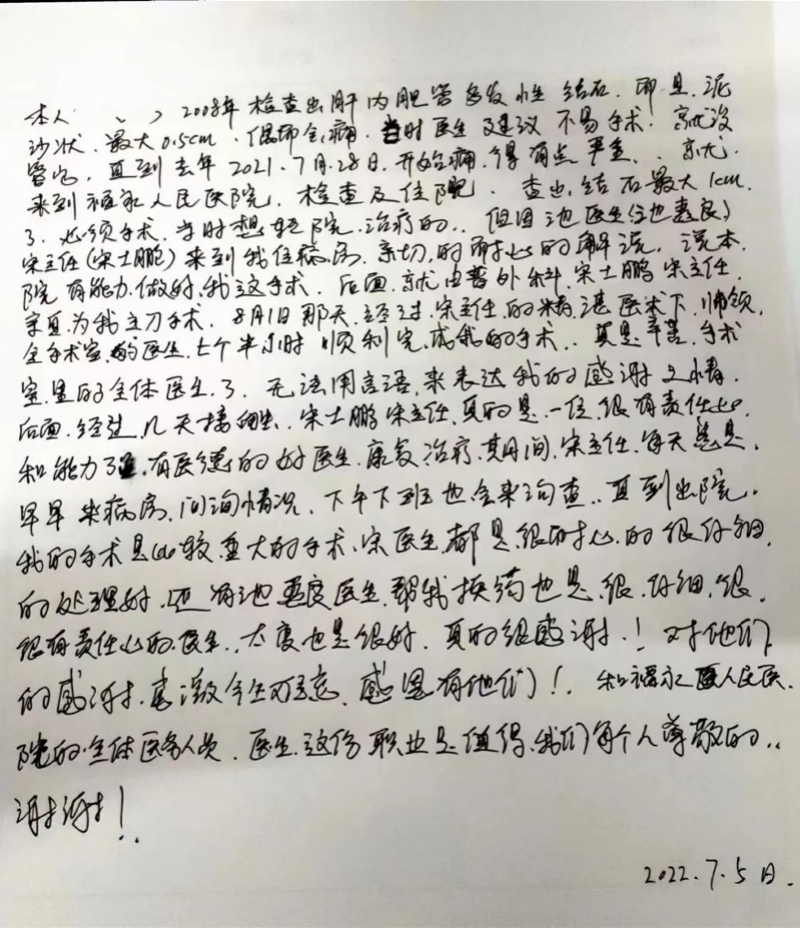 本人 2008年检查出肝内胆管多发性结石. 即是.泥
沙状.最大0.5cm.偶师会痛.当时医生建议不易手术!就没
管它,直到去年2021.7月.28日.开始痛.得有点严重..就.
来到福永人民医院.检查及住院.查出.结石最大1cm.
了.必须手术.当时想 院.治疗的..但因池医生(池惠良)
宋主任(宋士鹏)来到我住病房.亲切.的耐心的解说.说本.
院有能力.做好.我这手术.后面.就由普外科.宋士鹏宋主任.
亲自.为我主刀手术.8月1日那天.经过.宋主任.的精.湛医术下.师领.
全手术室.的医生.七个半小时 顺利完.成我的手术..真是辛苦.手术
室.里的全体医生.了.无法用言语.来表达我的感谢之情.
后面.经过.几天接触.宋士鹏宋主任.真的是.一位.很有责任心.
和能力了.有医德的好医生.康复治疗.期间.宋主任.每天总是.
早早来病房.问询情况.下午下班也会来询查..直到出院.
我的手术是比较重大的手术.宋医生.都是.很耐心.的很仔细.
的处理好.还有池惠良医生.帮我换药也是.很.仔细.很.
很有责任心的.医生..太度也是很好.真的很感谢.!对他们
的感谢.感激今生难忘.感恩有他们!.和福永人民医.
院的.全体医务人员.医生.这份职业是值得.我们每个人尊敬的..
谢谢!.
2022.7.5日.